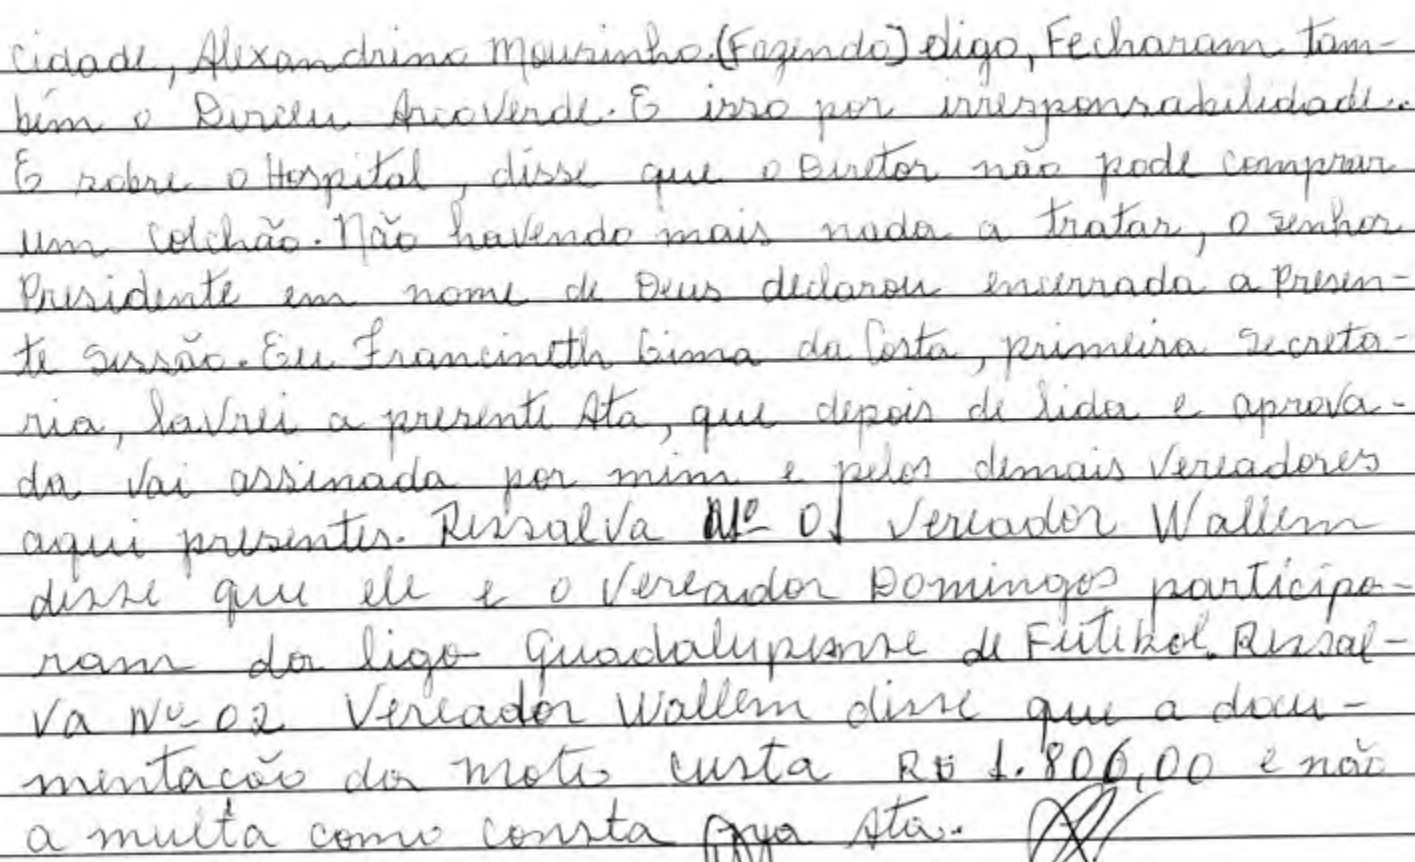 cidade, Alexandrino Mousinho. (Fazendo) digo, Fecharam tam-
bém o Dirceu Arcoverde. E isso por irresponsabilidade.
E sobre o Hospital, disse que o Diretor não pode comprar
um colchão. Não havendo mais nada a tratar, o senhor
Presidente em nome de Deus declarou encerrada a presen-
te sessão. Eu Francineth Lima da Costa, primeira secreta-
ria, lavrei a presente Ata, que depois de lida e aprova-
da vai assinada por mim e pelos demais Vereadores
aqui presentes. Ressalva Nº 01 Vereador Wallem
disse que ele e o Vereador Domingos participa-
ram da liga Guadalupense de Futebol. Ressal-
va Nº 02 Vereador Wallem disse que a docu-
mentação da moto custa R$ 1.806,00 e não
a multa como consta Ata.